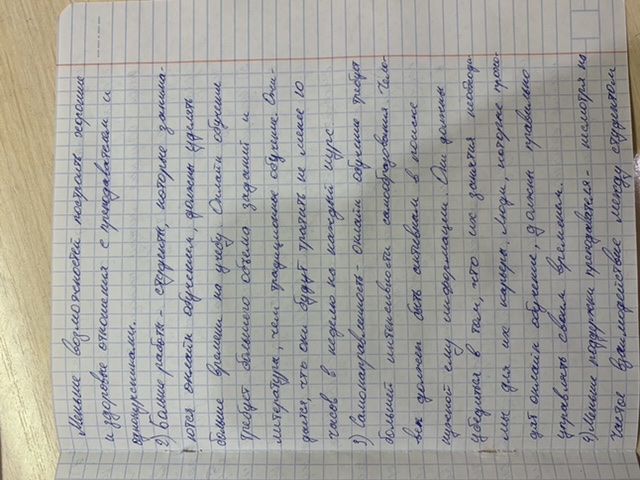 Меньше возможностей построить хорошие
и здоровые отношения с преподавателем и
однокурсниками.
2) Больше работы - студенты, которые занима-
ются онлайн обучением, должны уделять
больше времени на учебу. Онлайн обучение
требует большего объема заданий и
литературы, чем традиционные обучение. Ожи-
дается, что они будут тратить не менее 10
часов в неделю на каждый курс.
3) Самонаправленность - онлайн обучение требуе
большей интенсивности самообразования. Чело-
век должен быть активным в поиске
нужной ему информации. Они должны
убедится в том, что их занятия необходи-
мы для их карьеры. Люди, которые прохо-
дят онлайн обучение, должны правильно
управлять своим временем.
4) Меньше поддержки преподавателя - несмотря на
частое взаимодействие между студентом